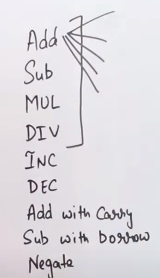 Add
Sub
MUL
DIV
INC
DEC
Add with Carry
Sub with borrow
Negate